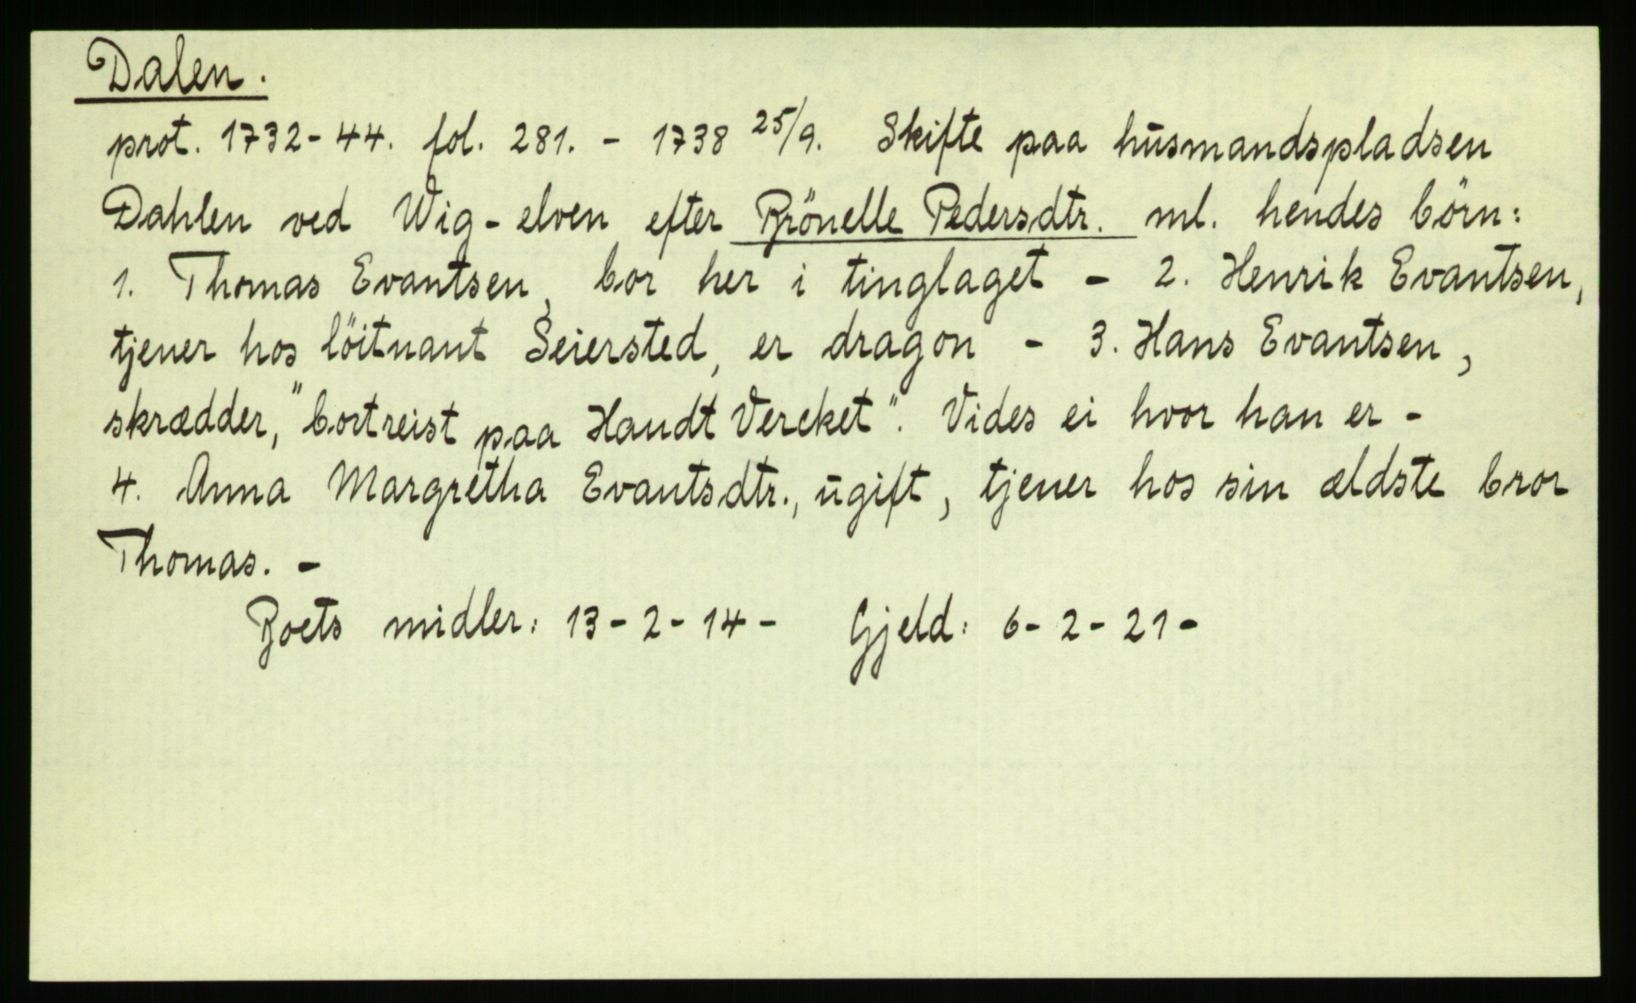 Dalen.
prot. 1732-44. fol. 281. - 1738 25/9. Skifte paa húsmandspladsen
Dahlen ved Wig-elven efter Brönelle Pedersdtr. ml. hendes börn:
1. Thomas Evantsen, bor her i tinglaget - 2. Henrik Evantsen,
tjener hos löitnant Seiersted, er dragon - 3. Hans Evantsen,
skrædder, "bortreist paa Handt Vercket". Vides ei hvor han er -
4. Anna Margretha Evantsdtr., ugift, tjener hos sin ældste bror
Thomas. -
Boets midler: 13-2-14- Gjeld: 6-2-21-